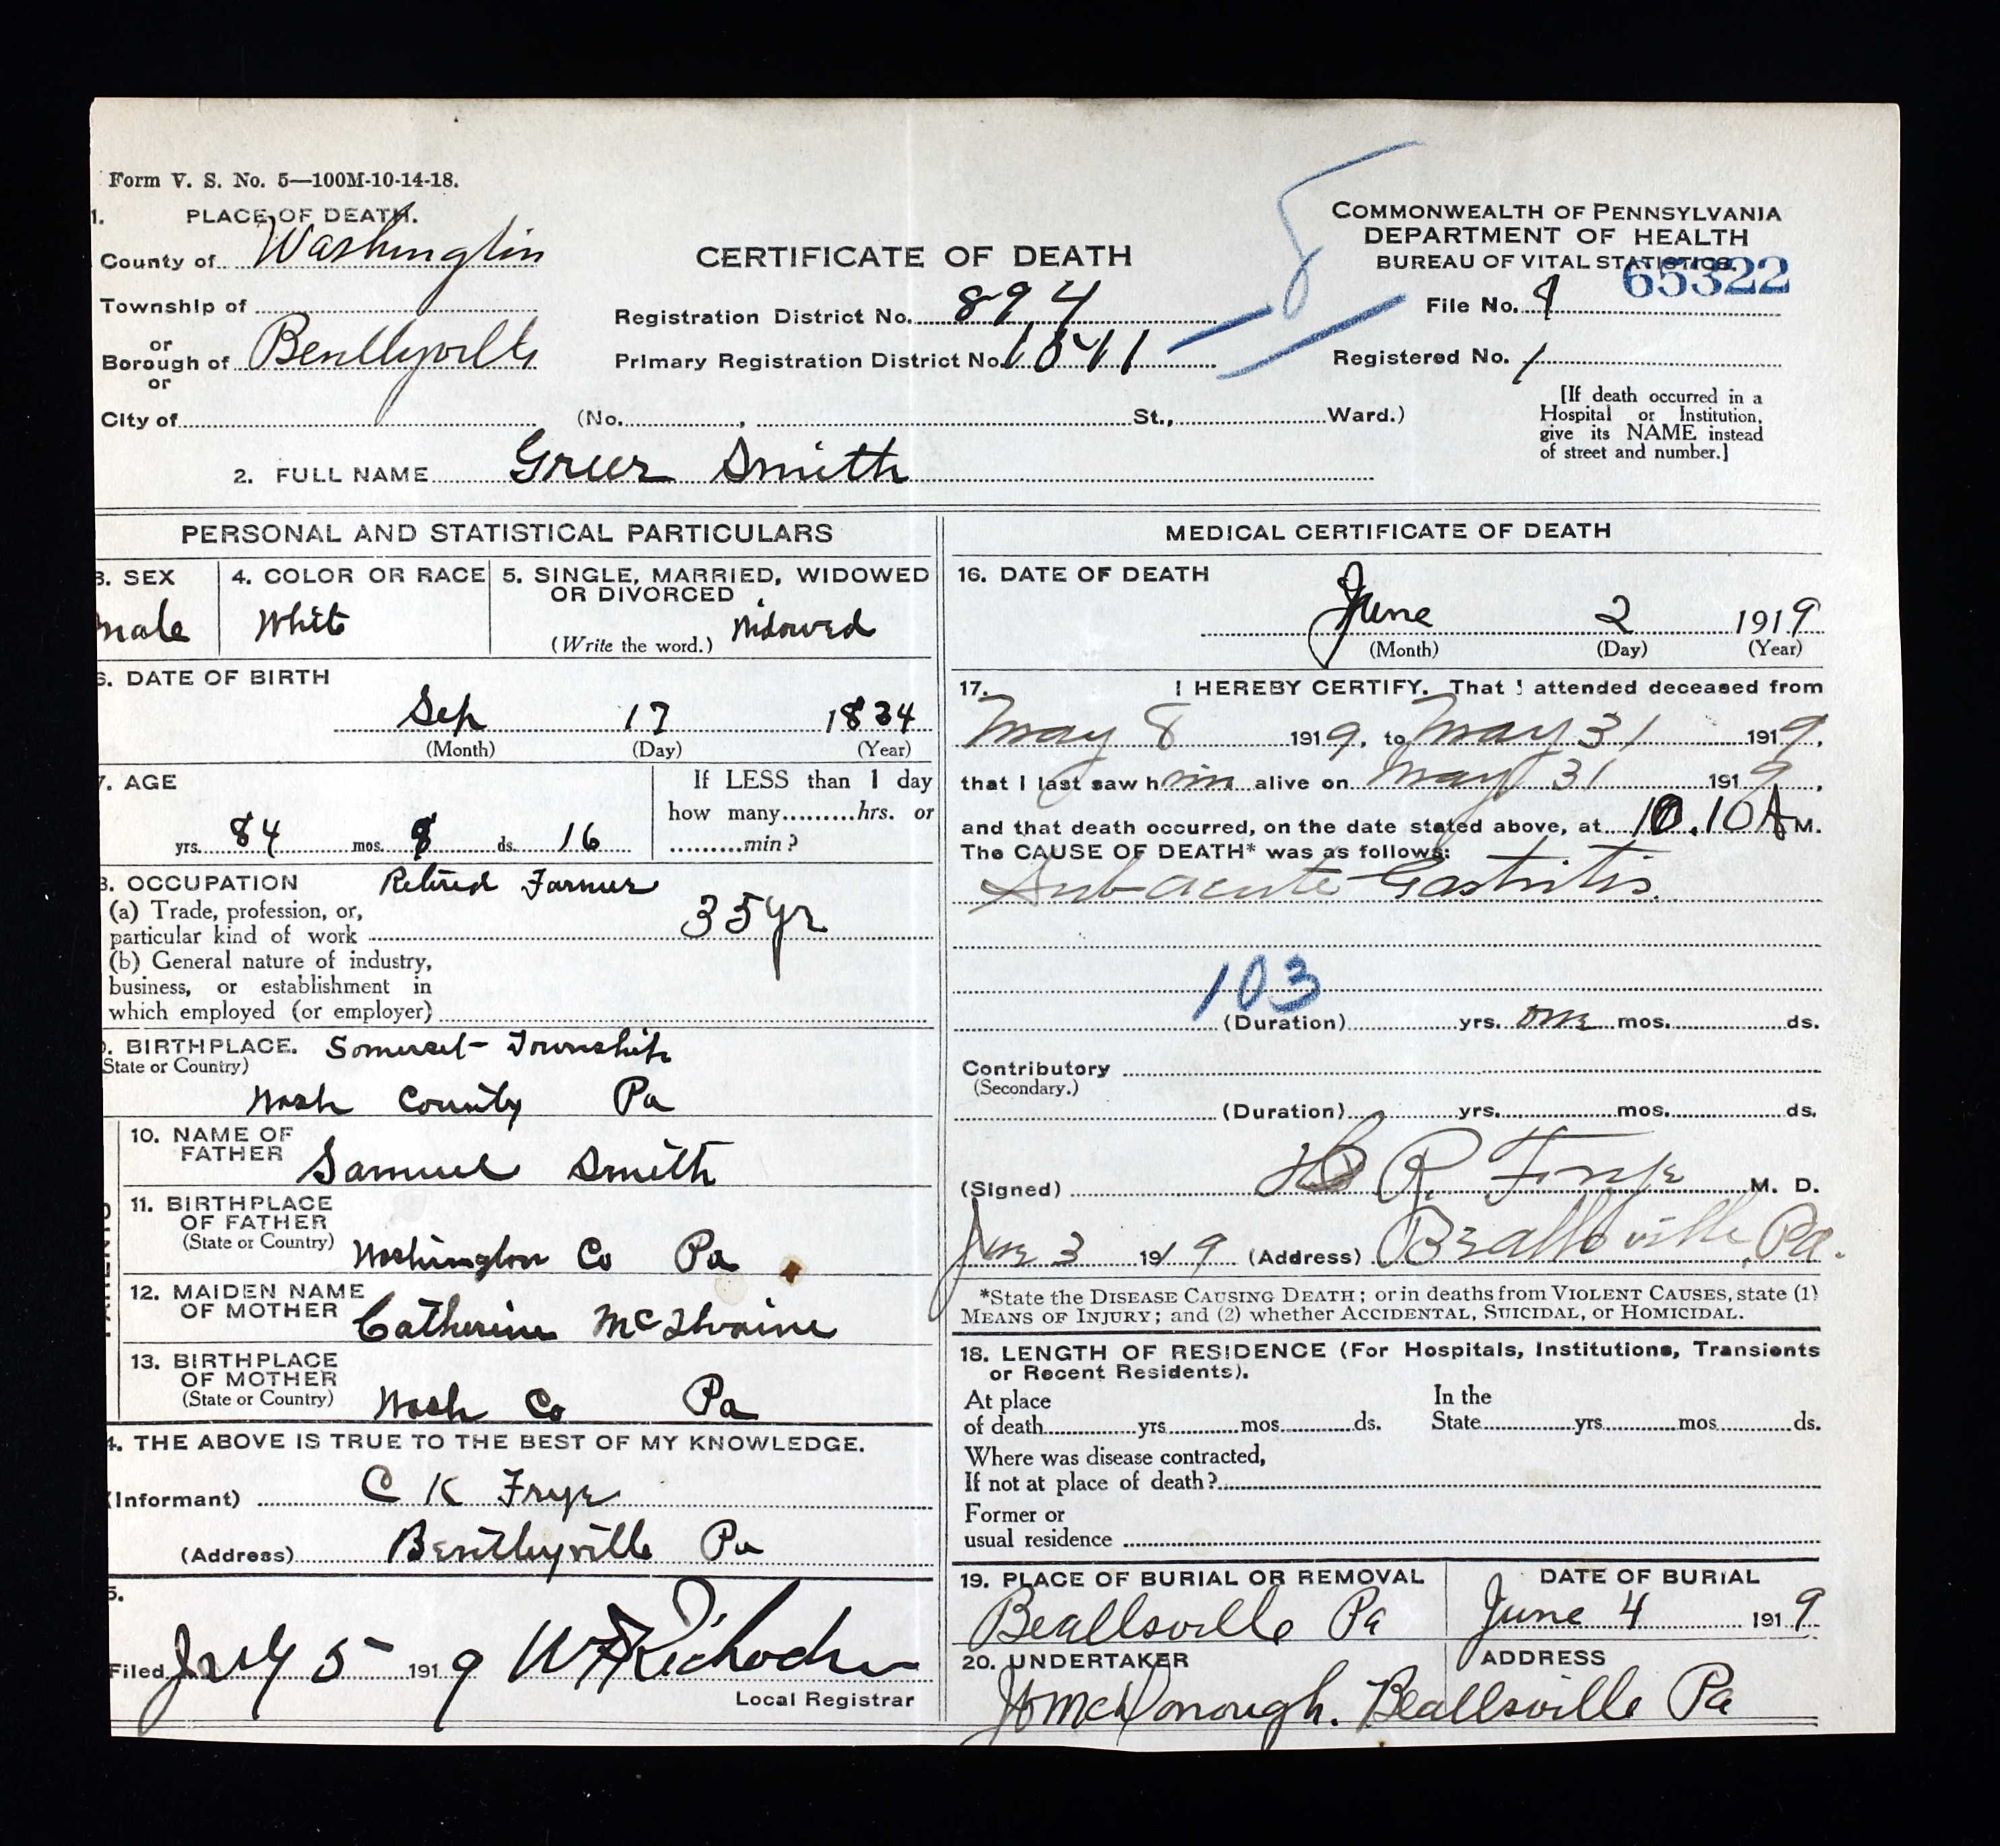 Form V. S. No. 5—100M-10-14-18.
1. PLACE OF DEATH.
County of Washington
Township of
or
Borough of Bentleyville
or
City of (No. , St., Ward.)
CERTIFICATE OF DEATH
Registration District No. 894
Primary Registration District No. 1841
COMMONWEALTH OF PENNSYLVANIA
DEPARTMENT OF HEALTH
BUREAU OF VITAL STATISTICS.
65322
File No.
Registered No. 1
[If death occurred in a
Hospital or Institution,
give its NAME instead
of street and number.]
2. FULL NAME Greer Smith
PERSONAL AND STATISTICAL PARTICULARS
3. SEX
male
4. COLOR OR RACE
White
5. SINGLE, MARRIED, WIDOWED
OR DIVORCED
(Write the word.) Widowed
6. DATE OF BIRTH
Sep 17 1834
(Month) (Day) (Year)
7. AGE
yrs. 84 mos. 8 ds. 16
If LESS than 1 day
how many.........hrs. or
.........min?
8. OCCUPATION Retired Farmer
(a) Trade, profession, or,
particular kind of work 35 yr
(b) General nature of industry,
business, or establishment in
which employed (or employer)
9. BIRTHPLACE. Somerset Township
(State or Country)
Wash County Pa
PARENTS
10. NAME OF
FATHER Samuel Smith
11. BIRTHPLACE
OF FATHER
(State or Country) Washington Co Pa
12. MAIDEN NAME
OF MOTHER Catherine McIlvaine
13. BIRTHPLACE
OF MOTHER
(State or Country) Wash Co Pa
4. THE ABOVE IS TRUE TO THE BEST OF MY KNOWLEDGE.
(Informant) C K Frye
(Address) Bentleyville Pa
5.
Filed July 5 1919
Local Registrar
MEDICAL CERTIFICATE OF DEATH
16. DATE OF DEATH
June 2 1919
(Month) (Day) (Year)
17. I HEREBY CERTIFY. That I attended deceased from
May 8 1919, to May 31 1919,
that I last saw him alive on May 31 1919,
and that death occurred, on the date stated above, at 10.10 A M.
The CAUSE OF DEATH* was as follows:
Sub-acute Gastritis.
103
(Duration) yrs. one mos. ds.
Contributory
(Secondary.)
(Duration) yrs. mos. ds.
(Signed) R. Frye M. D.
June 3 1919 (Address) Beallsville, Pa.
*State the DISEASE CAUSING DEATH; or in deaths from VIOLENT CAUSES, state (1)
MEANS OF INJURY; and (2) whether ACCIDENTAL, SUICIDAL, or HOMICIDAL.
18. LENGTH OF RESIDENCE (For Hospitals, Institutions, Transients
or Recent Residents).
At place In the
of death yrs. mos. ds. State yrs. mos. ds.
Where was disease contracted,
If not at place of death?
Former or
usual residence
19. PLACE OF BURIAL OR REMOVAL
Beallsville Pa
DATE OF BURIAL
June 4 1919
20. UNDERTAKER ADDRESS
McDonough. Beallsville Pa